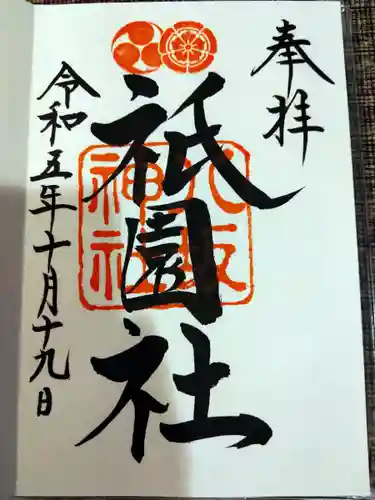 奉拝
八坂
神社
祇園社
令和五年十月十九日